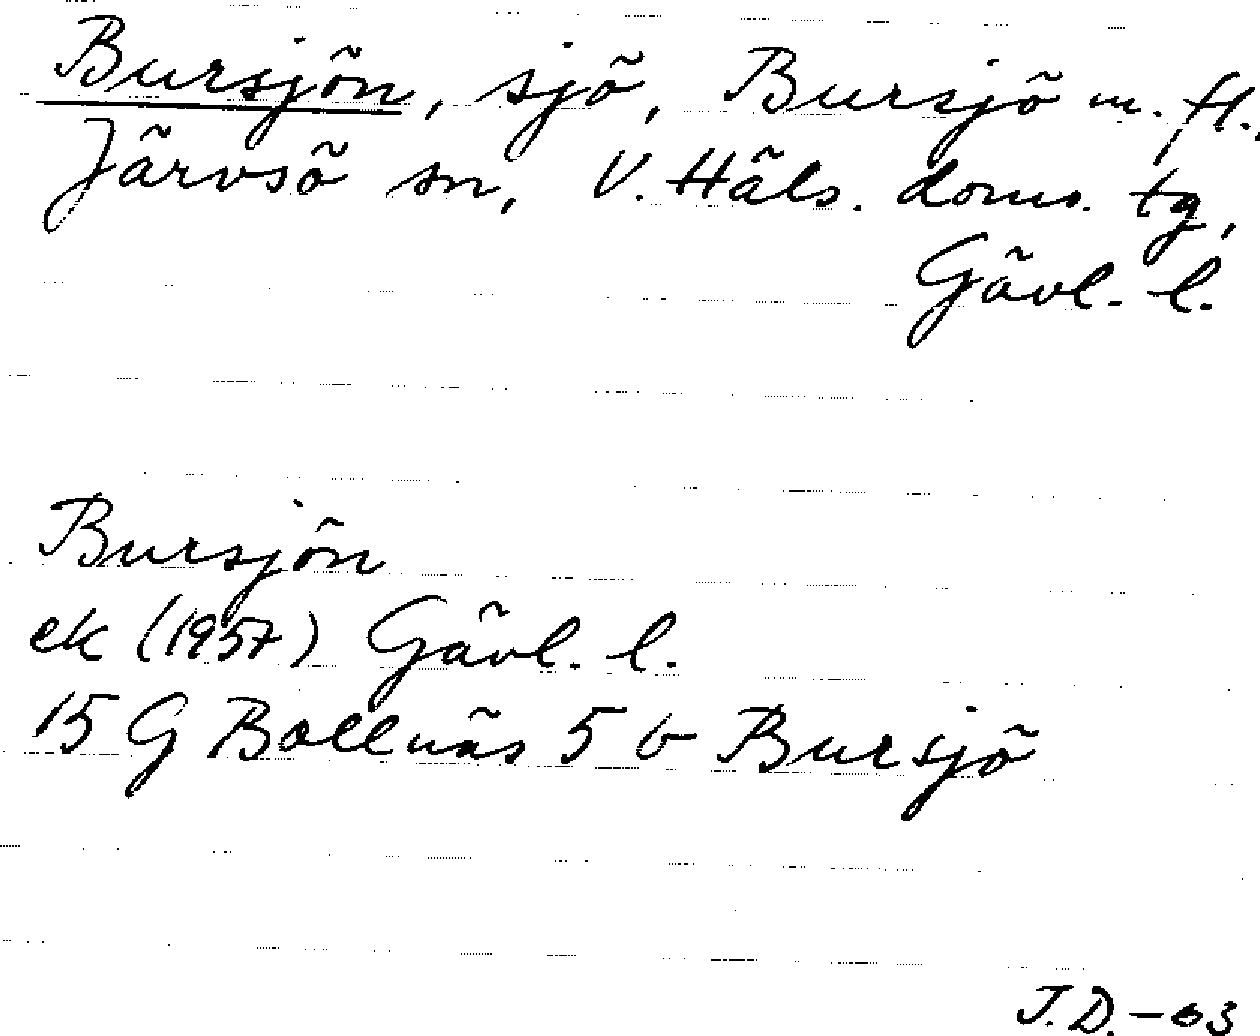 Bursjön, sjö, Bursjö m. fl.,
Järvsö sn, V. Häls. doms. tg,
Gävl. l.
Bursjön
ek (1957) Gävl. l.
15 G Bollnäs 5 b Bursjö
J.D. -63